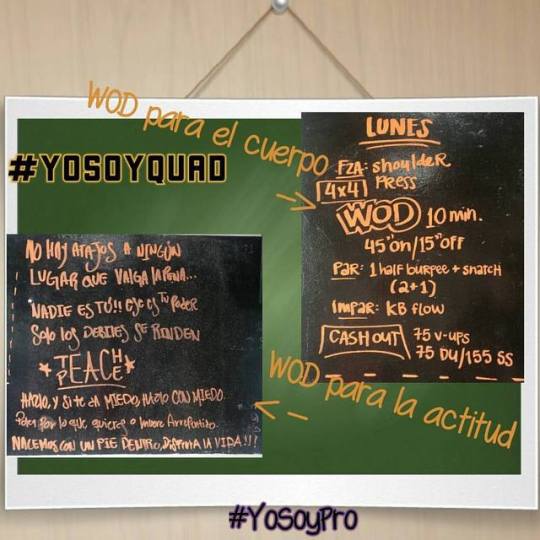 WOD para el cuerpo
#YOSOYQUAD
LUNES
FZA: shoulder
4x4 PRESS
WOD 10 min.
45"on/15"off
PAR: 1 half burpee + snatch
(2+1)
Impar: KB flow
CASH OUT 75 v-ups
75 DU/155 SS
NO HAY ATAJOS A NINGÚN
LUGAR QUE VALGA LA PENA...
NADIE ES TÚ!! ese es tu Poder
Solo los DEBILES SE RINDEN
HAZLO, Y SI te da MIEDO, HAZLO CON MIEDO.
por lo que quieres o muere Arrepentido.
NACEMOS CON UN PIE DENTRO, DISFRUTA LA VIDA!!!
WOD para la actitud
#YoSoyPro